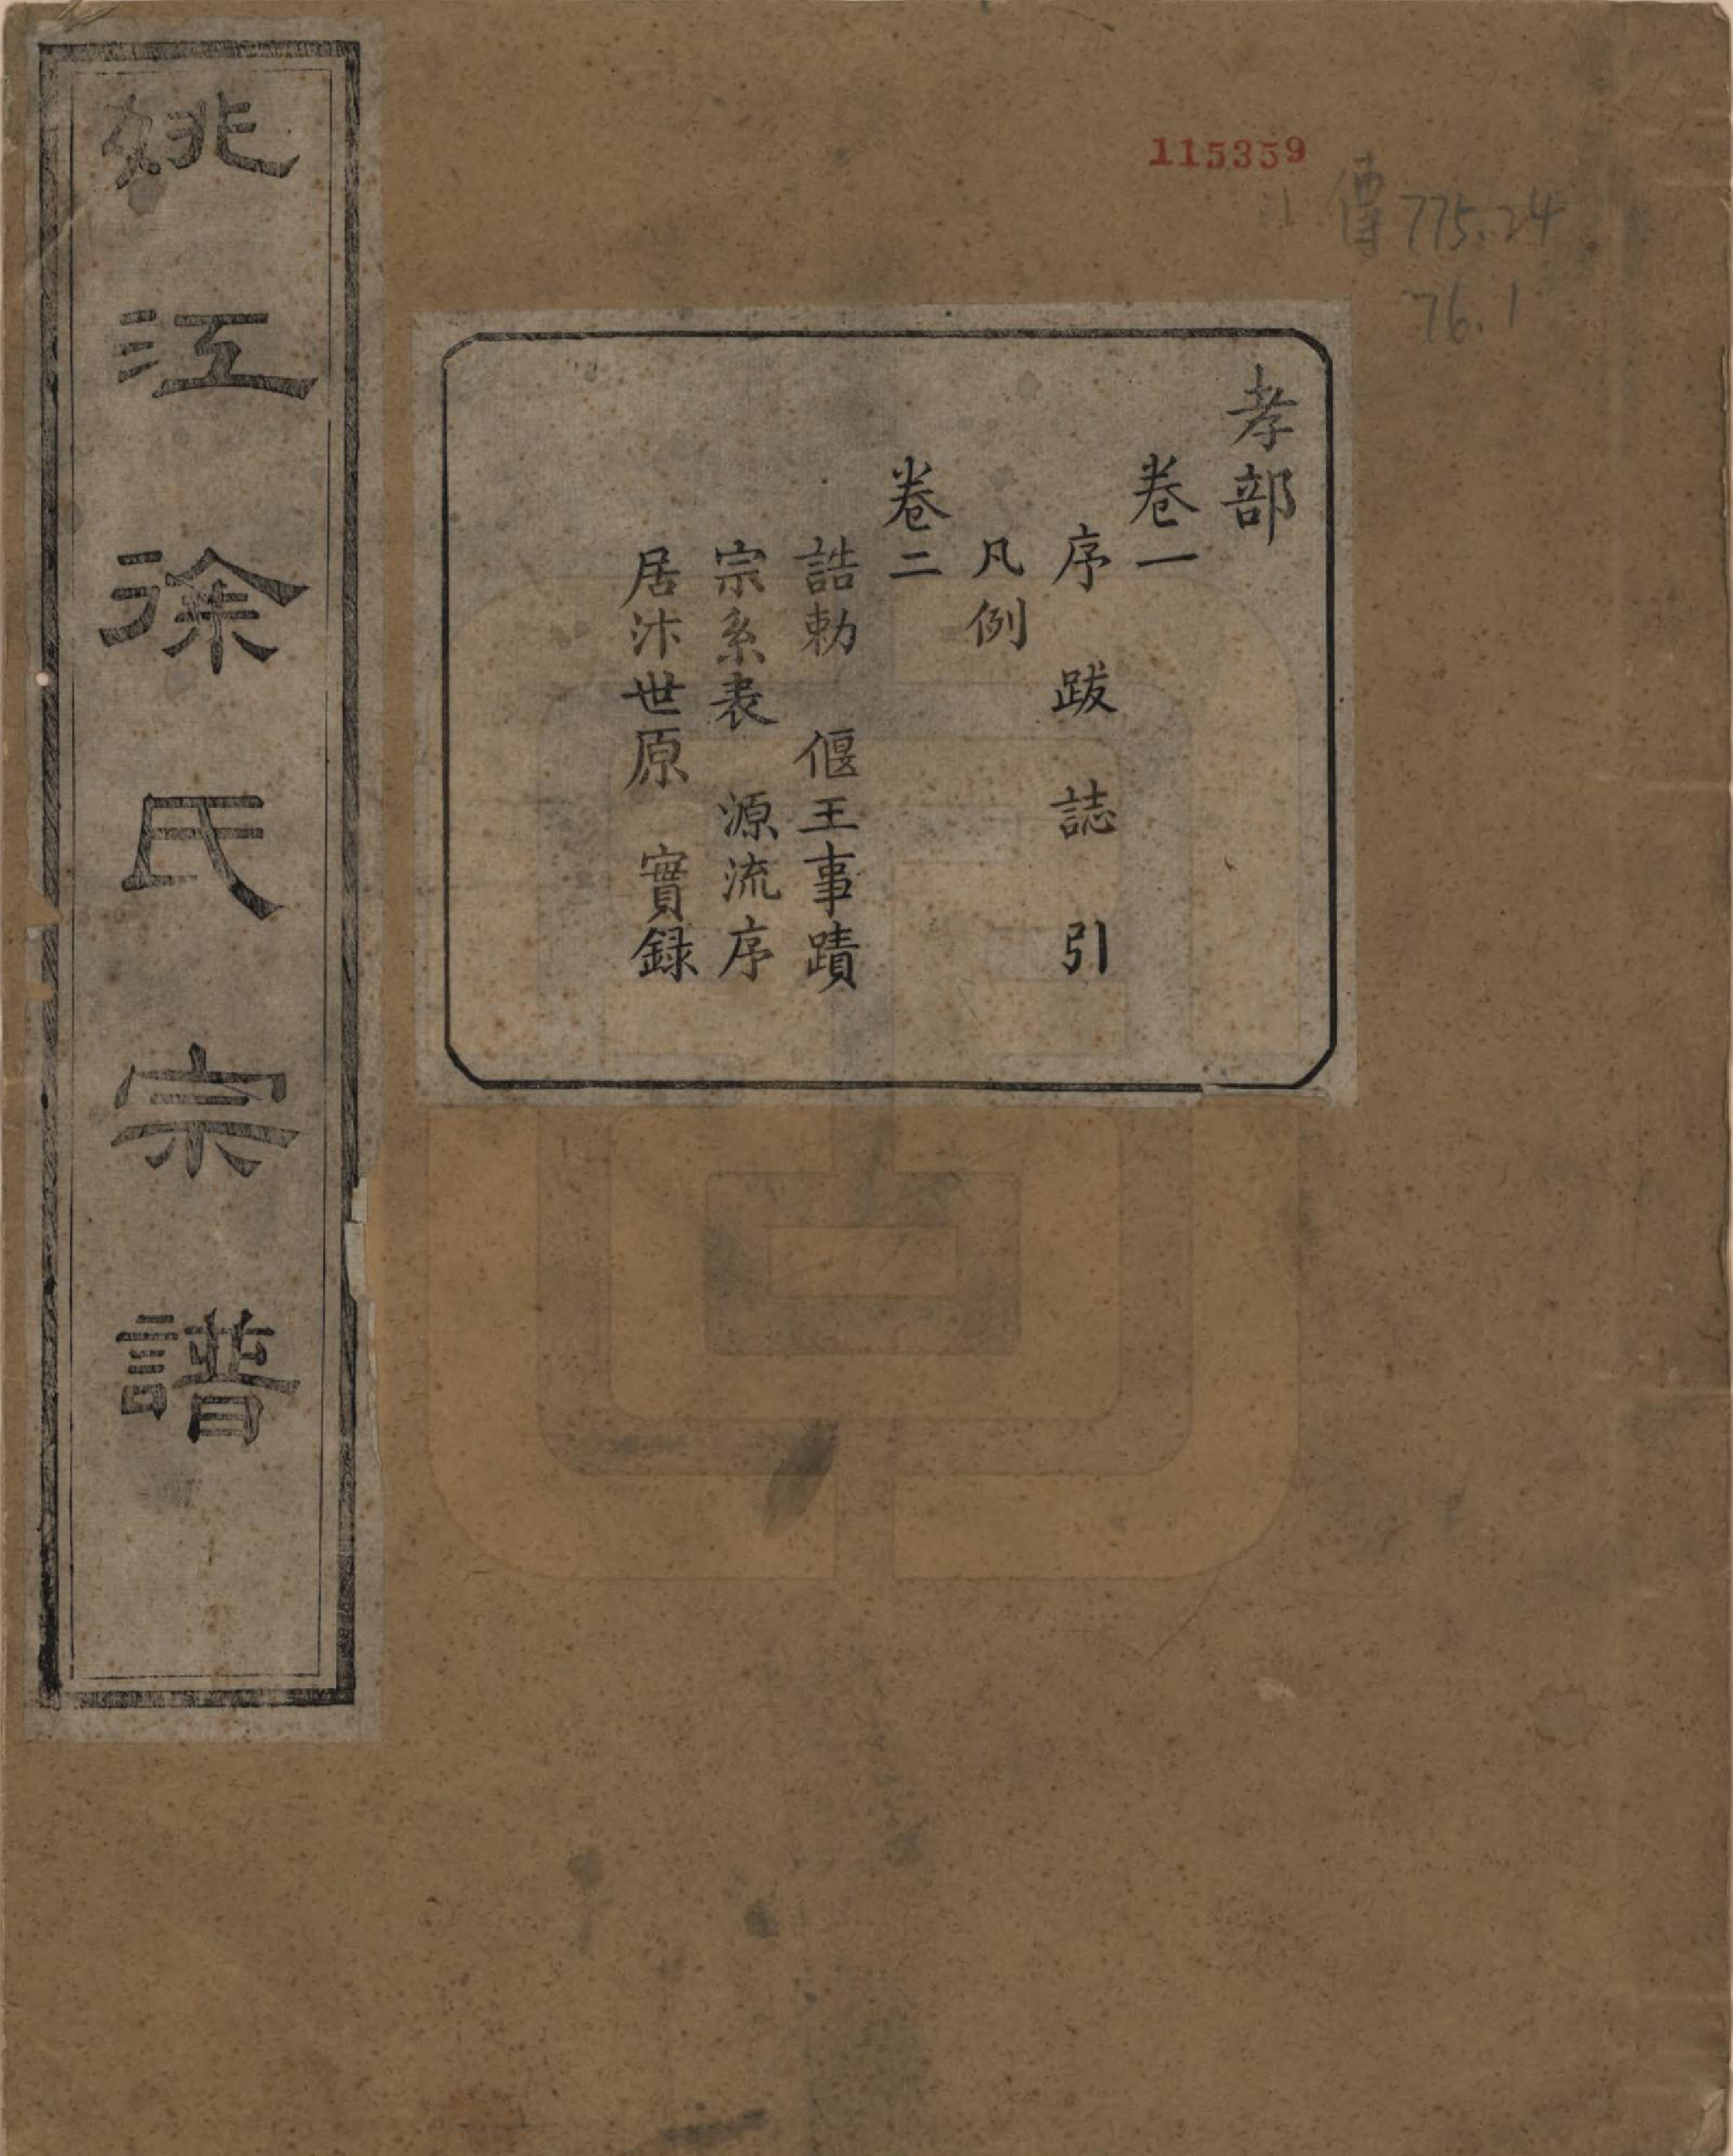 115359
傳 775.24
76.1
孝部
卷一
序 跋 誌 引
凡例
卷二
誥勅 偃王事蹟
宗系表 源流序
居汴世原 實録
姚江徐氏宗譜